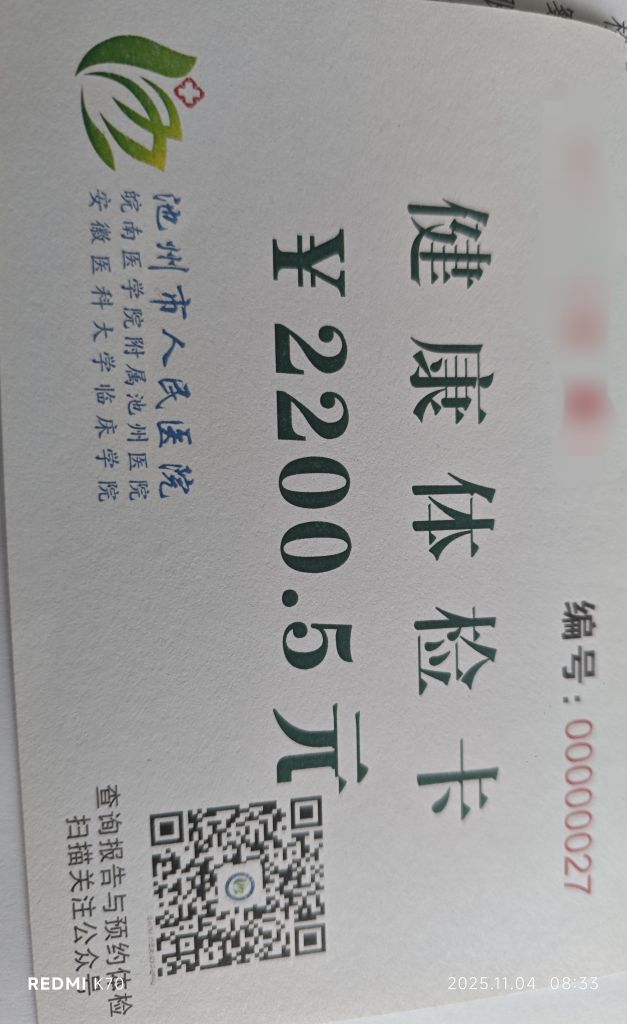 编号：00000027
健康体检卡
¥2200.5元
池州市人民医院
皖南医学院附属池州医院
安徽医科大学临床学院
查询报告与预约体检
扫描关注公众号
REDMI K70
2025.11.04 08:33